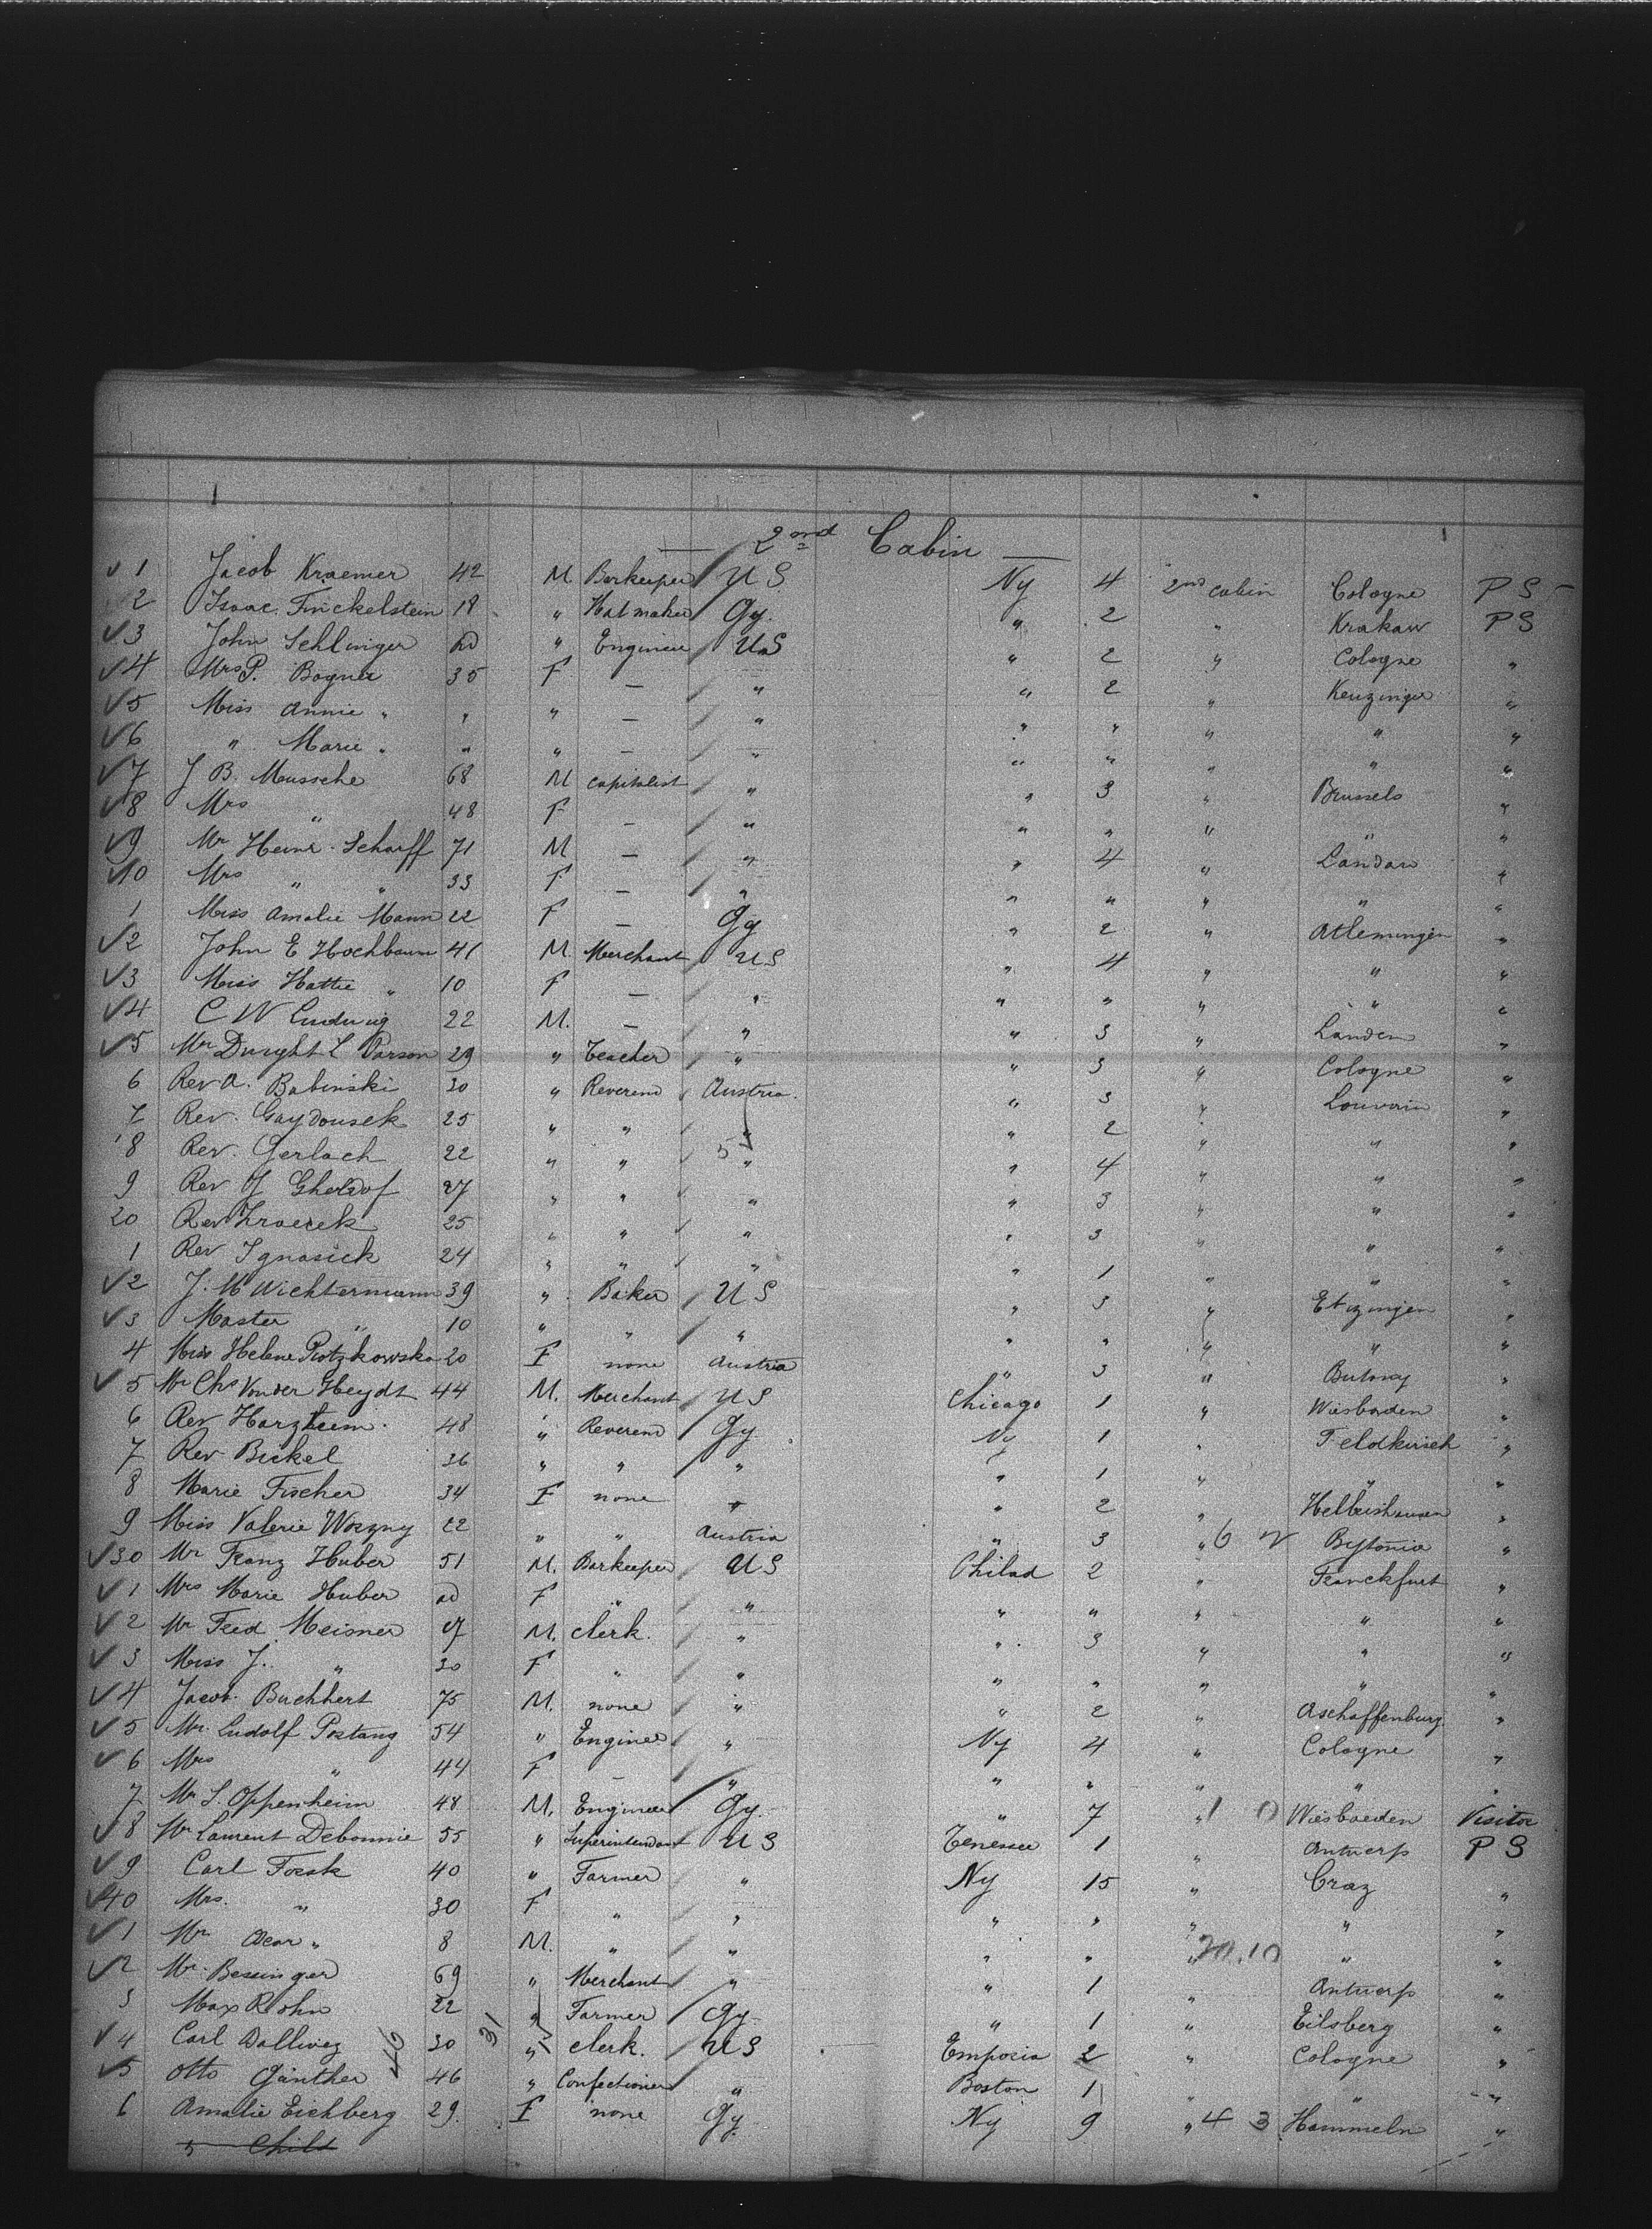 2nd Cabin
✓ 1 Jacob Kraemer 42 M. Barkeeper U S Ny 4 2nd cabin Cologne P S
✓ 2 Isaac. Finckelstein 18 " Hatmaker Gy. " 2 " Krakaw P S
✓ 3 John Sehlinger " Engineer U S " 2 " Cologne "
✓ 4 Mrs P. Bogner 35 F — " " 2 " Kenzinger "
✓ 5 Miss Annie " " " — " " " " " "
✓ 6 " Marie " " " — " " " " " "
✓ 7 J B. Mussche 68 M capitalist " " 3 " Brussels "
✓ 8 Mrs " 48 F — " " " " " "
✓ 9 Mr Heinr. Scharff 71 M — " " 4 " Landau "
✓ 10 Mrs " " 33 F — " " " " " "
1 Miss Amalie Mann 22 F — Gy " 2 " Atlemingen "
✓ 2 John E Hochbaum 41 M. Merchant U S " 4 " " "
✓ 3 Miss Hattie " 10 F — " " " " " "
✓ 4 C W Ludwig 22 M. — " " 3 " Landen "
✓ 5 Mr Dwight L Parson 29 " Teacher " " 3 " Cologne "
6 Rev A. Babinski 30 " Reverend Austria. " 3 " Louvain "
7 Rev. Gaydousek 25 " " " " 2 " " "
8 Rev. Gerlach 22 " " 5 " " 4 " " "
9 Rev J Gheldof 27 " " " " 3 " " "
20 Rev 25 " " " " 3 " " "
1 Rev Ignasick 24 " " " " 1 " " "
✓ 2 J. M Wichtermann 39 " Baker U S " 3 " Etizingen "
✓ 3 Master " 10 " " " " " " " "
4 Miss Helene Piotzkowska 20 F none Austria " 3 " "
✓ 5 Mr Chs Vonder Heydt 44 M. Merchant U S Chicago 1 " Wiesbaden "
6 Rev Harzheim. 48 " Reverend Gy. Ny 1 " Feldkirsch "
7 Rev Bickel 36 " " " " 1 " " "
8 Marie Fischer 34 F none " " 2 " "
9 Miss Valerie Woszny 22 " " Austria " 3 " 6 Bytonia "
✓ 30 Mr Franz Huber 51 M. Barkeeper U S Philad 2 " Franckfurt "
✓ 1 Mrs Marie Huber F " " " " " " "
✓ 2 Mr Fred Meisner 27 M. clerk. " " 3 " " "
✓ 3 Miss J. " 30 F " " " " " " "
✓ 4 Jacob. Buchhert 75 M. none " " 2 " Aschaffenburg "
✓ 5 Mr. Ludolf Postang 54 " Engineer " Ny 4 " Cologne "
✓ 6 Mrs " 44 F — " " " " " "
7 Mr S. Oppenheim 48 M. Engineer Gy. " 7 " 1 0 Wiesbaden Visitor
✓ 8 Mr Laurent Debonnie 55 " Superintendant U S Tenessee 1 " Antwerp P S
✓ 9 Carl Forsk 40 " Farmer " Ny 15 " Craz "
✓ 40 Mrs. " 30 F " " " " " " "
✓ 1 Mr Oscar " 8 M. " " " " " 20.10 " "
✓ 2 Mr. Bessinger 69 " Merchant " " 1 " Antwerp "
3 Max Rohn 22 " Farmer Gy " 1 " Eilsberg "
✓ 4 Carl Dallwig 46 30 31 " clerk. U S Emporia 2 " Cologne "
✓ 5 Otto Günther 46 " Confectioner " Boston 1 " " "
6 Amalie Eichberg 29. F none Gy. Ny 9 " 4 3 Hammeln "
" Child